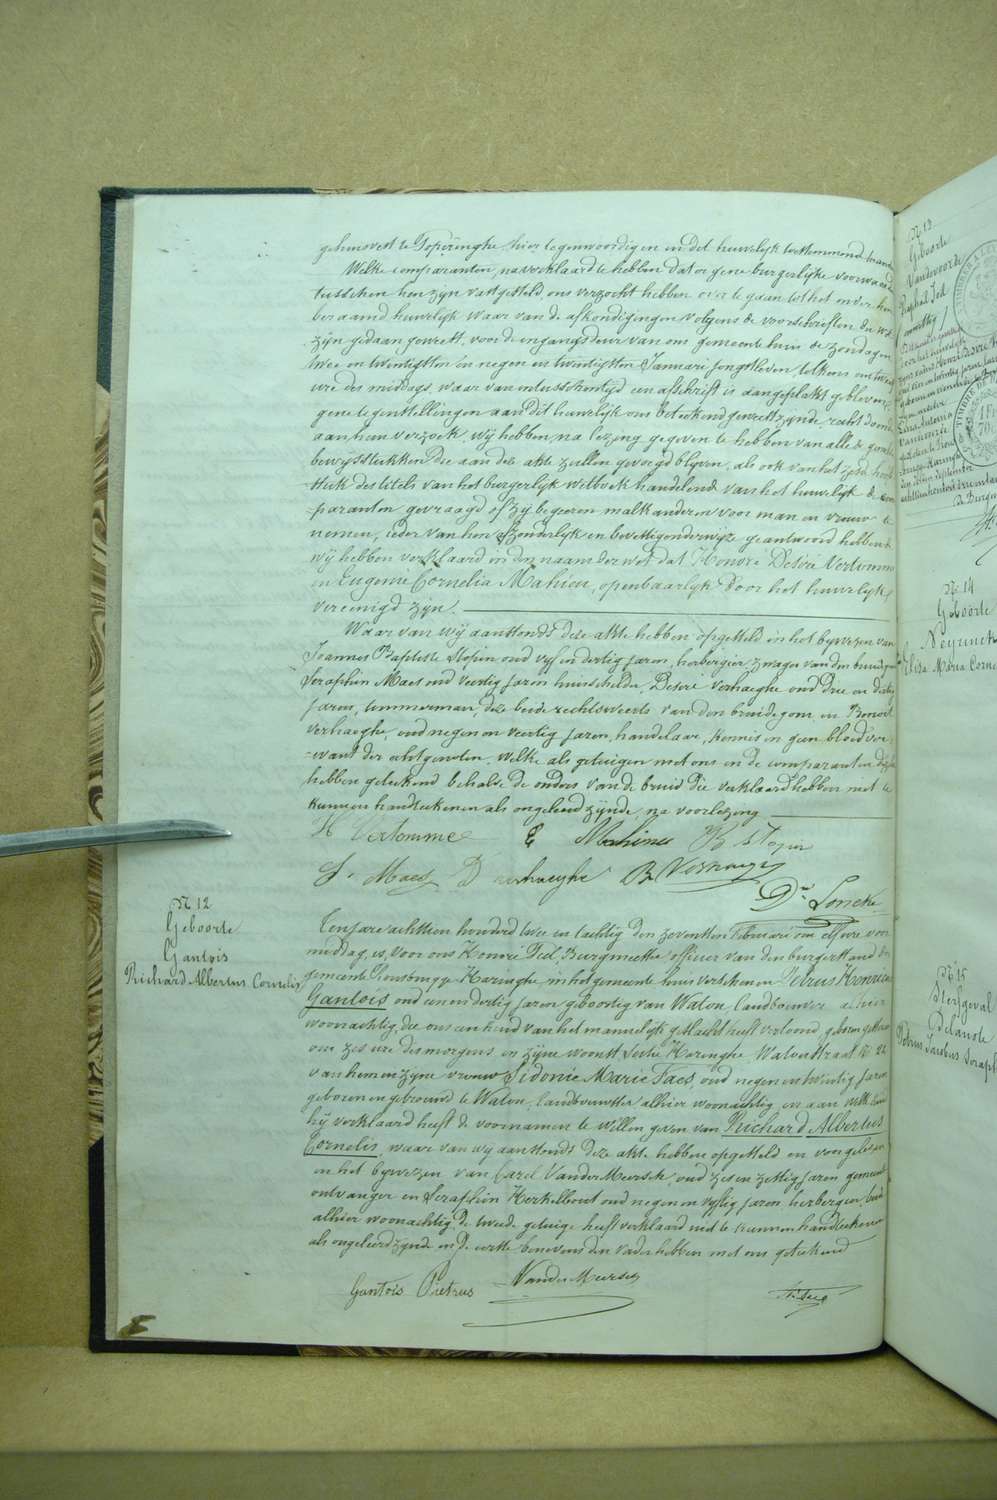 gehuisvest te Poperinghe, hier tegenwoordig en in dit huwelijk toestemmend
Welke comparanten, na verklaard te hebben dat er gene burgerlijke voorwaarden
tusschen hen zijn vastgesteld, ons verzocht hebben over te gaan tot het onder hen
beraamd huwelijk waar van de afkondigingen volgens de voorschriften der wet
zijn gedaan geweest, voor de ingangsdeur van ons gemeente huis de zondagen
twee en twintigsten en negen en twintigsten Januari jongstleden, telkens om twaalf
ure des middags, waar van intusschentijd een afschrift is aangeplakt gebleven,
gene tegenstellingen aan dit huwelijk ons beteekend geweest zijnde, recht doende
aan hun verzoek, wij hebben, na lezing gegeven te hebben van alle de gemelde
bewijsstukken die aan deze akte zullen gevoegd blijven, als ook van het zesde hoofd
stuk des titels van het burgerlijk wetboek handelende van het huwelijk de com
paranten gevraagd of zij begeeren malkanderen voor man en vrouw te
nemen, ieder van hen afzonderlijk en bevestigenderwijze geantwoord hebbende
wij hebben verklaard in den naam der wet dat Honoré Desiré Vertomme
en Eugenie Cornelia Mahieu, openbaarlijk door het huwelijk
vereenigd zijn.
Waar van wij aanstonds deze akte hebben opgesteld in het bijwezen van
Joannes Baptiste Stopin oud vijf en dertig jaren, herbergier zwager van den bruidegom
Seraphin Maes oud veertig jaren huisschilder, Desiré Verhaeghe oud drie en dertig
jaren, timmerman, deze beide rechtszweers van den bruidegom en Benoit
Verhaeghe, oud negen en veertig jaren, handelaar, kennis en geen bloedver
want der echtgenoten, welke als getuigen met ons en de comparanten
hebben geteekend behalve de ouders van de bruid die verklaard hebben niet te
kunnen handteekenen als ongeleerd zijnde, na voorlezing
H Vertomme E Mahieu JB Stopin
S. Maes D Verhaeghe B Verhaeghe
Dr Loncke
N 12
Geboorte
Gantois
Richard Albertus Cornelis
Ten jare achttien honderd twee en tachtig den zevensten Februari om elf ure voor
middag, is, voor ons Honoré Feÿs, Burgmeester officier van den burgerstand der
gemeente Rousbrugge Haringhe in het gemeente huis verschenen Petrus Henricus
Gantois oud een en dertig jaren geboortig van Watou landbouwer alhier
woonachtig, die ons een kind van het mannelijk geslacht heeft vertoond, geboren gisteren
om zes ure des morgens in zijne woonst sectie Haringhe Watoustraat N 22
van hem en zijne vrouw Sidonie Marie Faes, oud negen en twintig jaren
geboren en getrouwd te Watou, landbouwster alhier woonachtig en aan welk kind
hij verklaard heeft de voornamen te willen geven van Richard Albertus
Cornelis, waar van wij aanstonds deze akte hebben opgesteld en voorgelezen
in het bijwezen van Carel VanderMeersch, oud zes en zestig jaren gemeente
ontvanger en Seraphin Herkelbout oud negen en vijftig jaren herbergier, beide
alhier woonachtig, de tweede getuige heeft verklaard niet te kunnen handteekenen
als ongeleerd zijnde en de eerste benevens den vader hebben met ons geteekend
Gantois Pietrus VanderMeersch
N 13
Geboorte
Vandevoorde
Raphaël
N 14
Geboorte
Neyrinck
Elisa Maria Corne
N 15
Sterfgeval
Delanote
Petrus Jacobus Seraph